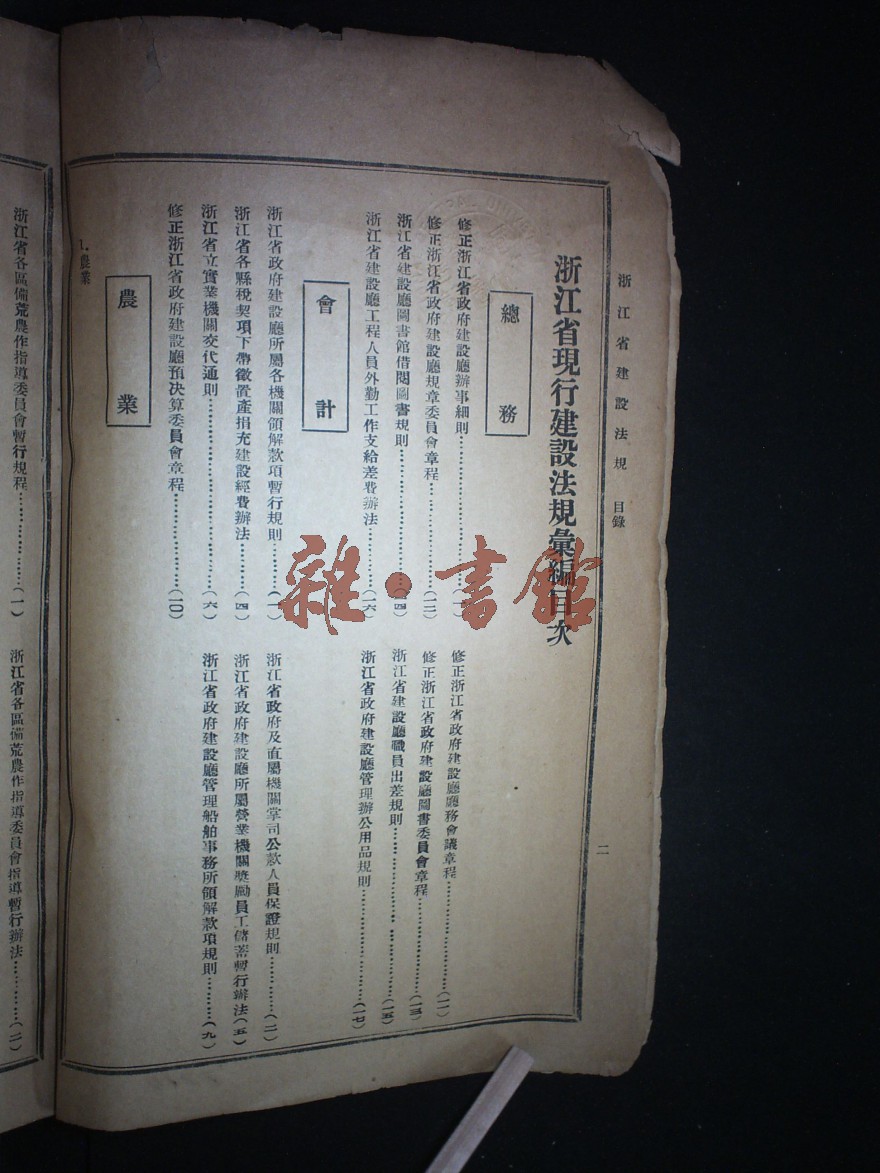 浙江省建設法規 目錄
二
浙江省現行建設法規彙編目次
總務
修正浙江省政府建設廳辦事細則
修正浙江省政府建設廳廳務會議章程(一一)
修正浙江省政府建設廳規章委員會章程(一二)
修正浙江省政府建設廳圖書委員會章程(一三)
浙江省建設廳圖書館借閱圖書規則(一四)
浙江省建設廳職員出差規則(一五)
浙江省建設廳工程人員外勤工作支給差費辦法(一六)
浙江省政府建設廳管理辦公用品規則(一七)
會計
浙江省政府建設廳所屬各機關領解款項暫行規則(一)
浙江省政府及直屬機關掌司公款人員保證規則(二)
浙江省各縣稅契項下帶徵置產捐充建設經費辦法(四)
浙江省政府建設廳所屬營業機關獎勵員工儲蓄暫行辦法(五)
浙江省立實業機關交代通則(六)
浙江省政府建設廳管理船舶事務所領解款項規則(九)
修正浙江省政府建設廳預決算委員會章程(一〇)
農業
1.農業
浙江省各區備荒農作指導委員會暫行規程(一)
浙江省各區備荒農作指導委員會指導暫行辦法(二)
雜·書館